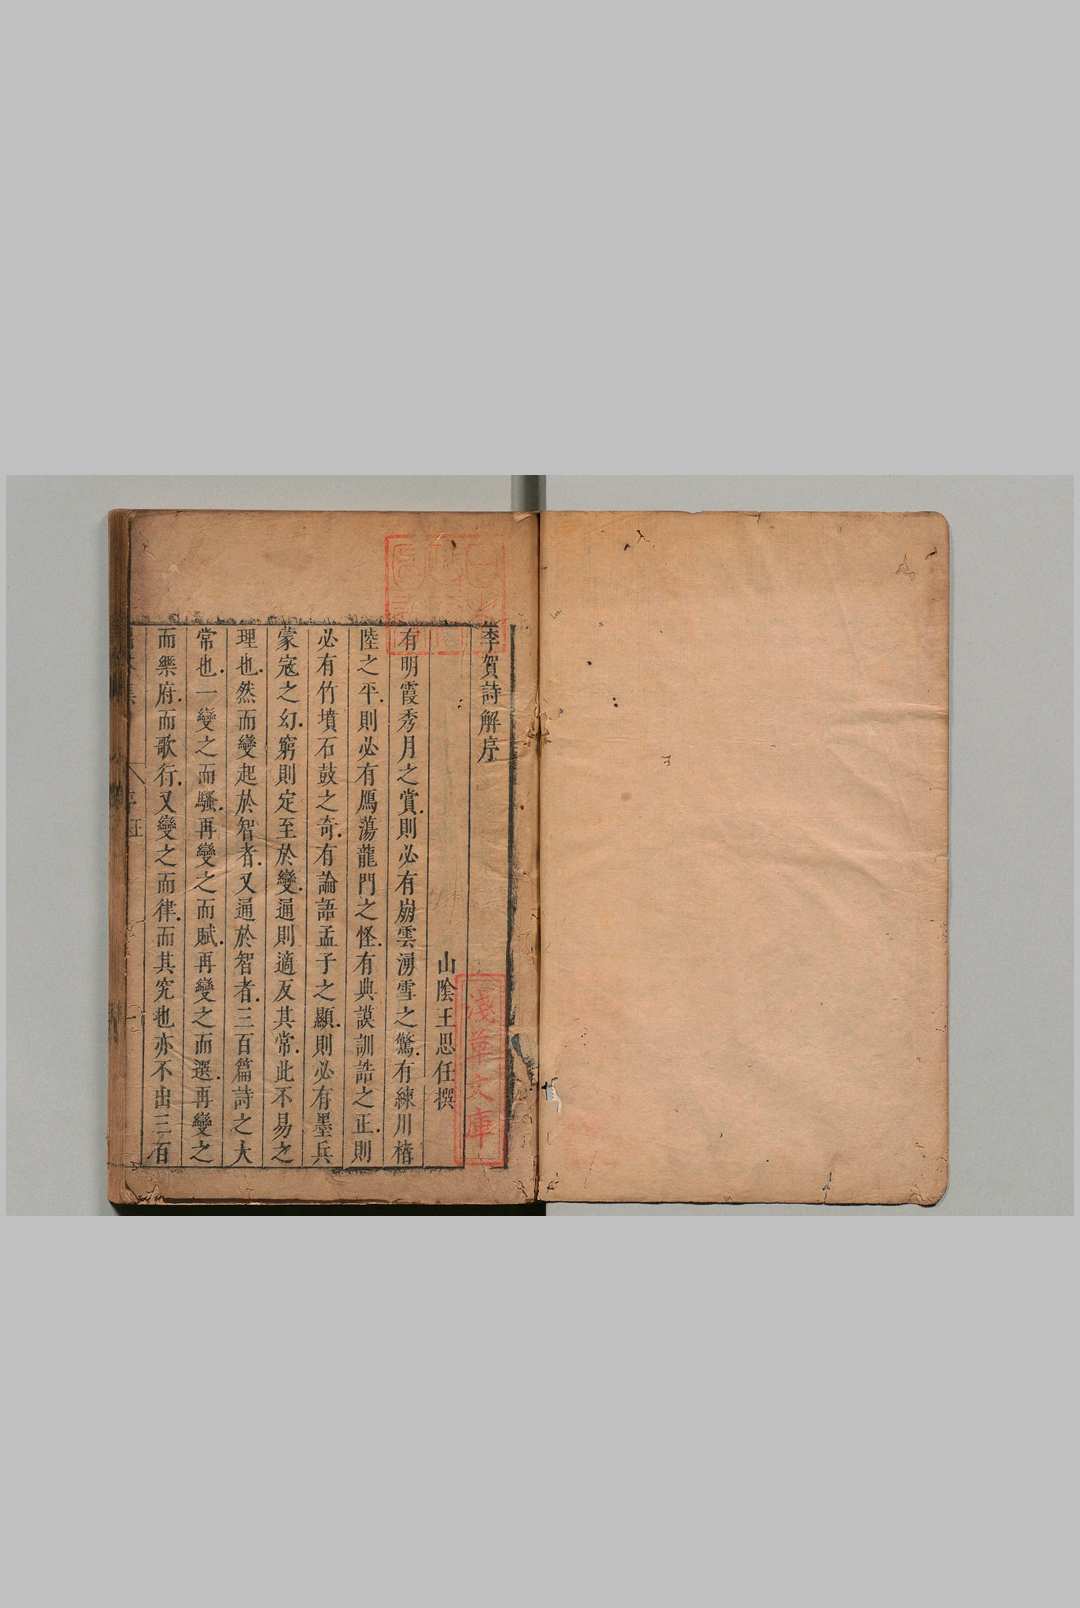 李賀詩解序
山陰王思任撰
有明霞秀月之賞則必有崩雲湧雪之驚有練川楮
陸之平則必有鴈蕩龍門之怪有典謨訓誥之正則
必有竹墳石鼓之奇有論語孟子之顯則必有墨兵
蒙寇之幻窮則定至於變通則適反其常此不易之
理也然而變起於智者又通於智者三百篇詩之大
常也一變之而騷再變之而賦再變之而選再變之
而樂府而歌行又變之而律而其究也亦不出三百
淺草文庫